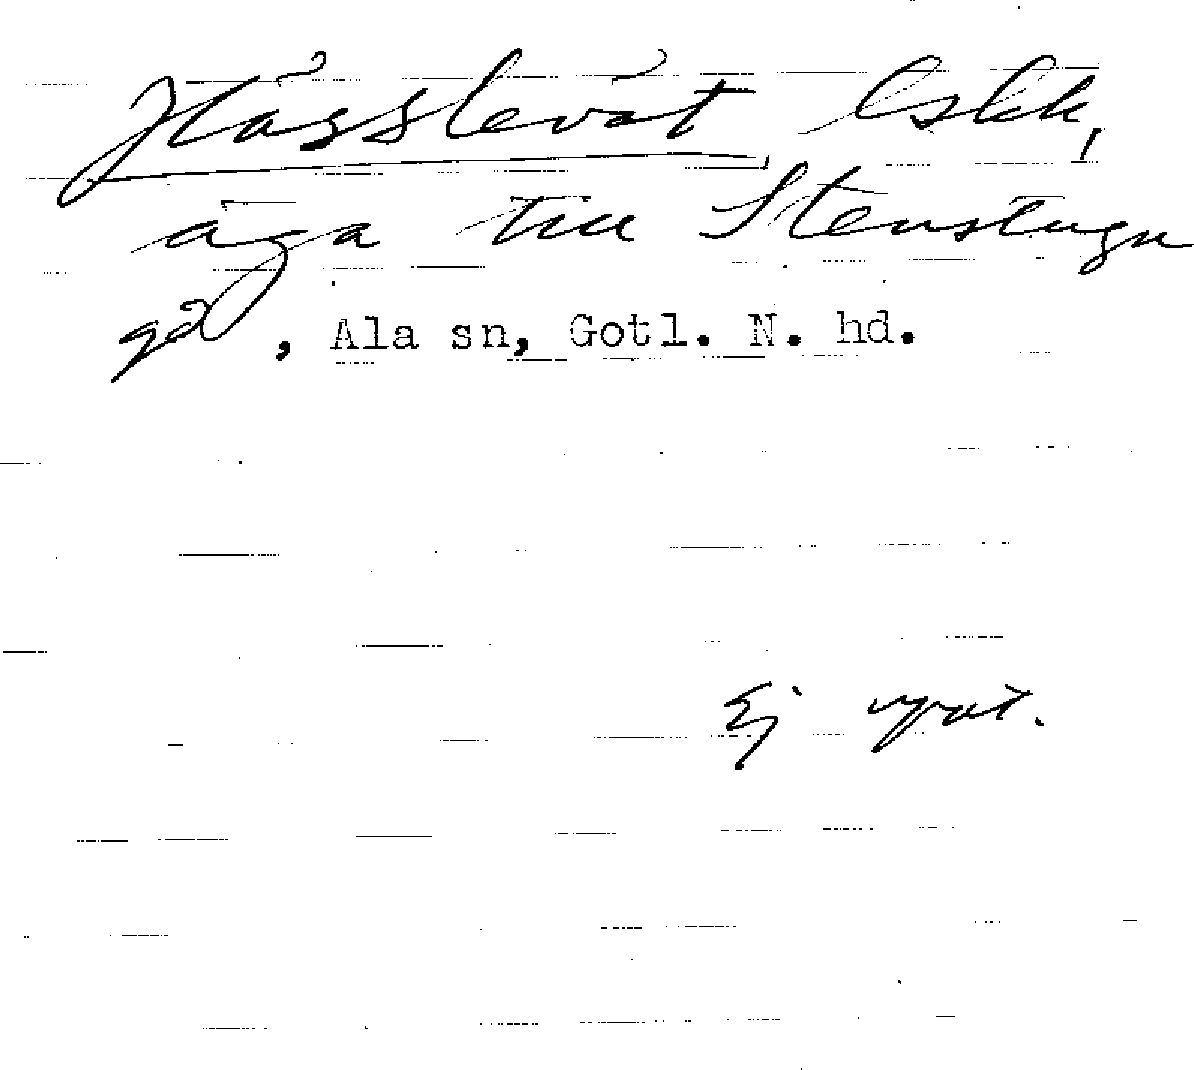 Hässlevät, lskk,
äga till Stenstugu
gd, Ala sn, Gotl. N. hd.
Ej uppt.